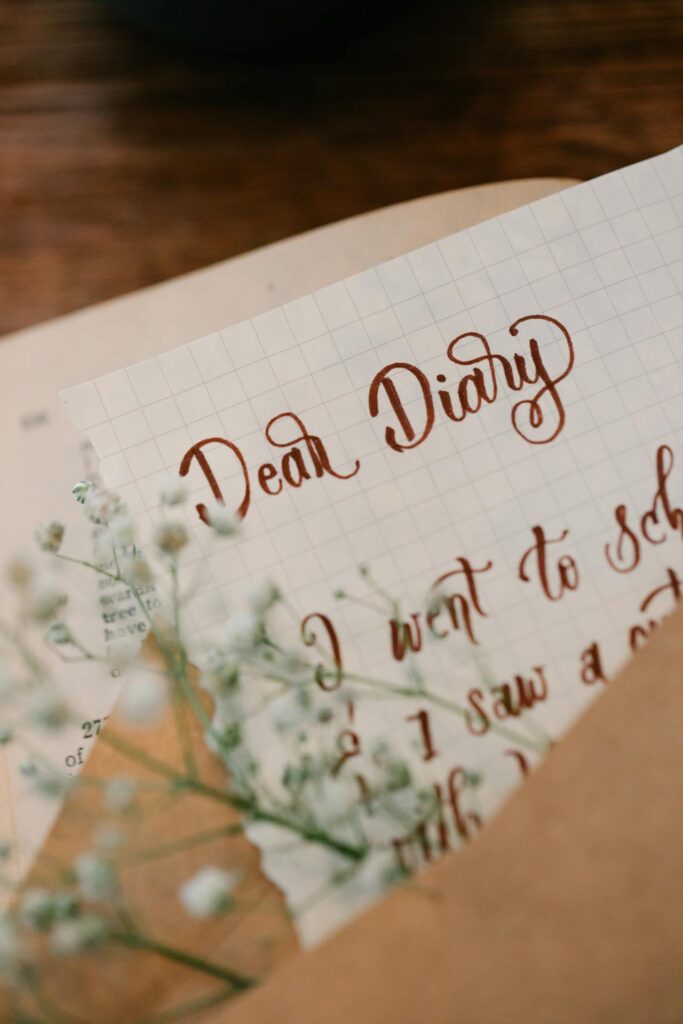 Dear Diary
I went to sch
I saw a
with
tree to
have
27
of